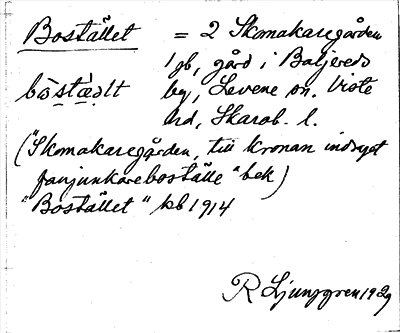 Bostället = 2 Skomakaregården
1 gb, gård i Baljereds
bò̀stæ̀lt by, Levene sn. Viste
hd, Skarab. l.
("Skomakaregården, till kronan indraget
fanjunkareboställe" bek)
"Bostället" kb 1914
R Ljunggren 1929